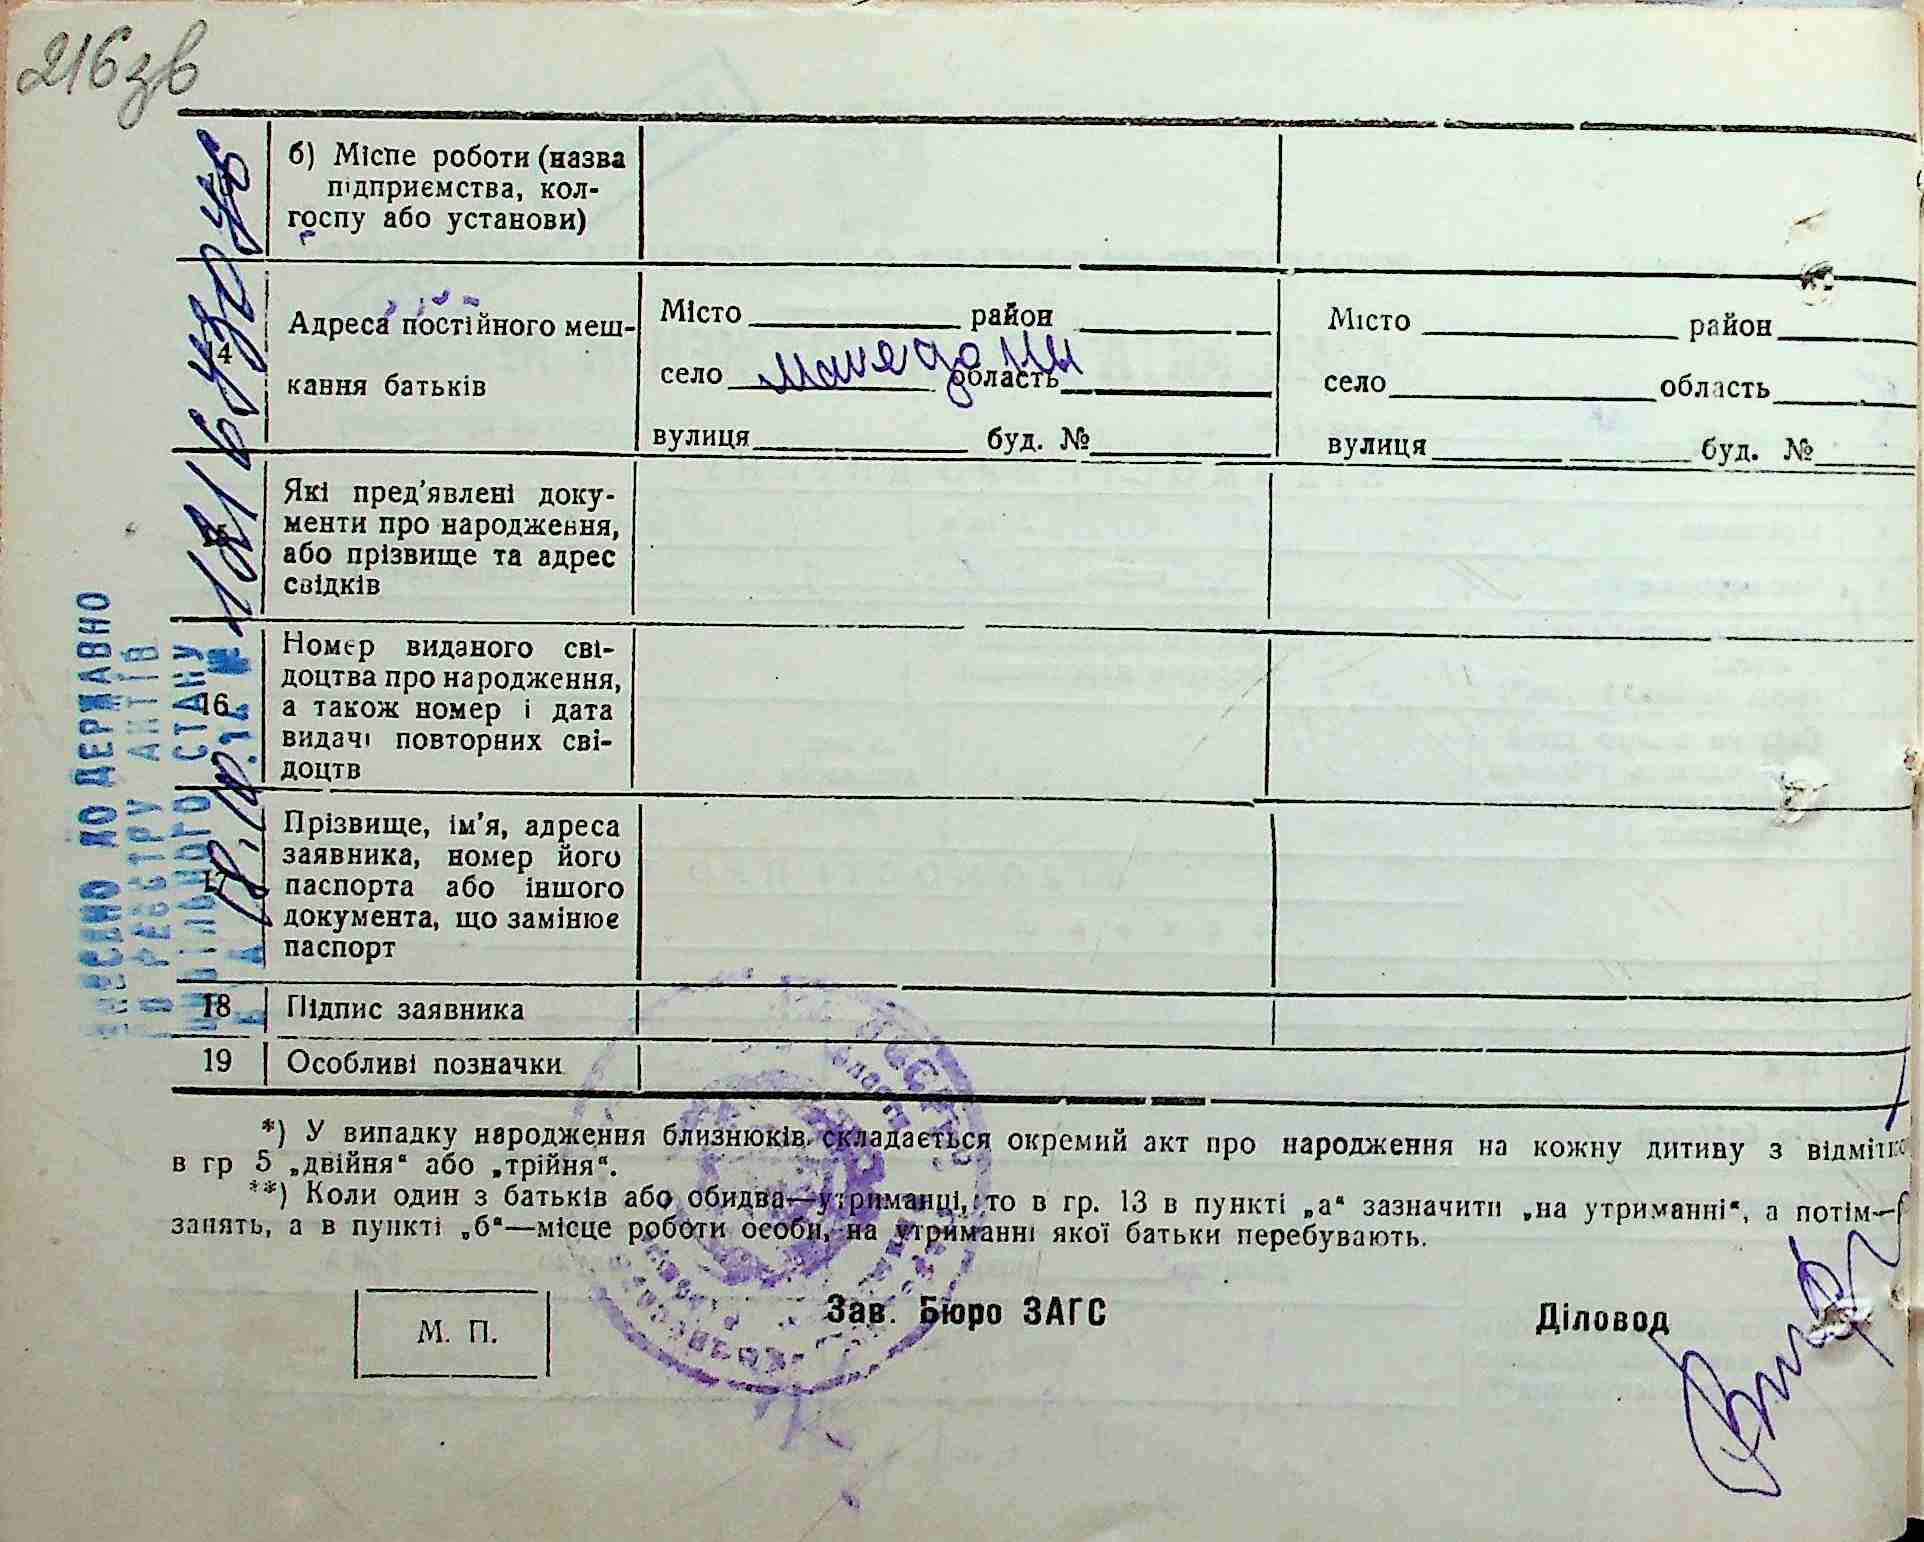 216зв
б) Місце роботи (назва
підприємства, кол-
госпу або установи)
14
Адреса постійного меш-
кання батьків
Місто район
село область
вулиця буд. №
Місто район
село область
вулиця буд. №
15
Які пред'явлені доку-
менти про народження,
або прізвище та адрес
свідків
16
Номер виданого сві-
доцтва про народження,
а також номер і дата
видачі повторних сві-
доцтв
17
Прізвище, ім'я, адреса
заявника, номер його
паспорта або іншого
документа, що замінює
паспорт
18 Підпис заявника
19 Особливі позначки
*) У випадку народження близнюків складається окремий акт про народження на кожну дитину з відміткою
в гр 5 „двійня“ або „трійня“.
**) Коли один з батьків або обидва—утриманці, то в гр. 13 в пункті „а“ зазначити „на утриманні“, а потім—
занять, а в пункті „б“—місце роботи особи, на утриманні якої батьки перебувають.
М. П.
Зав. Бюро ЗАГС
Діловод
ВНЕСЕНО ДО ДЕРЖАВНО
О РЕЄСТРУ АКТІВ
ЦИВІЛЬНОГО СТАНУ